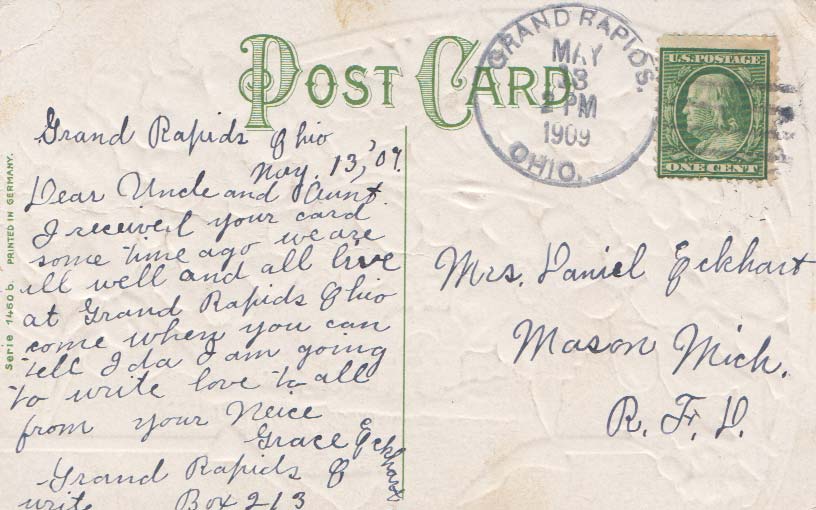 POST CARD
GRAND RAPIDS.
MAY
13
2 PM
1909
OHIO.
U.S. POSTAGE
ONE CENT
Serie 1460 b. PRINTED IN GERMANY.
Grand Rapids Ohio
May. 13, '09.
Dear Uncle and Aunt.
I received your card
some time ago we are
all well and all live
at Grand Rapids Ohio
come when you can
tell Ida I am going
to write love to all
from your Neice
Grace Eckhart
Grand Rapids O
write Box 213
Mrs. Daniel Eckhart
Mason Mich.
R. F. D.